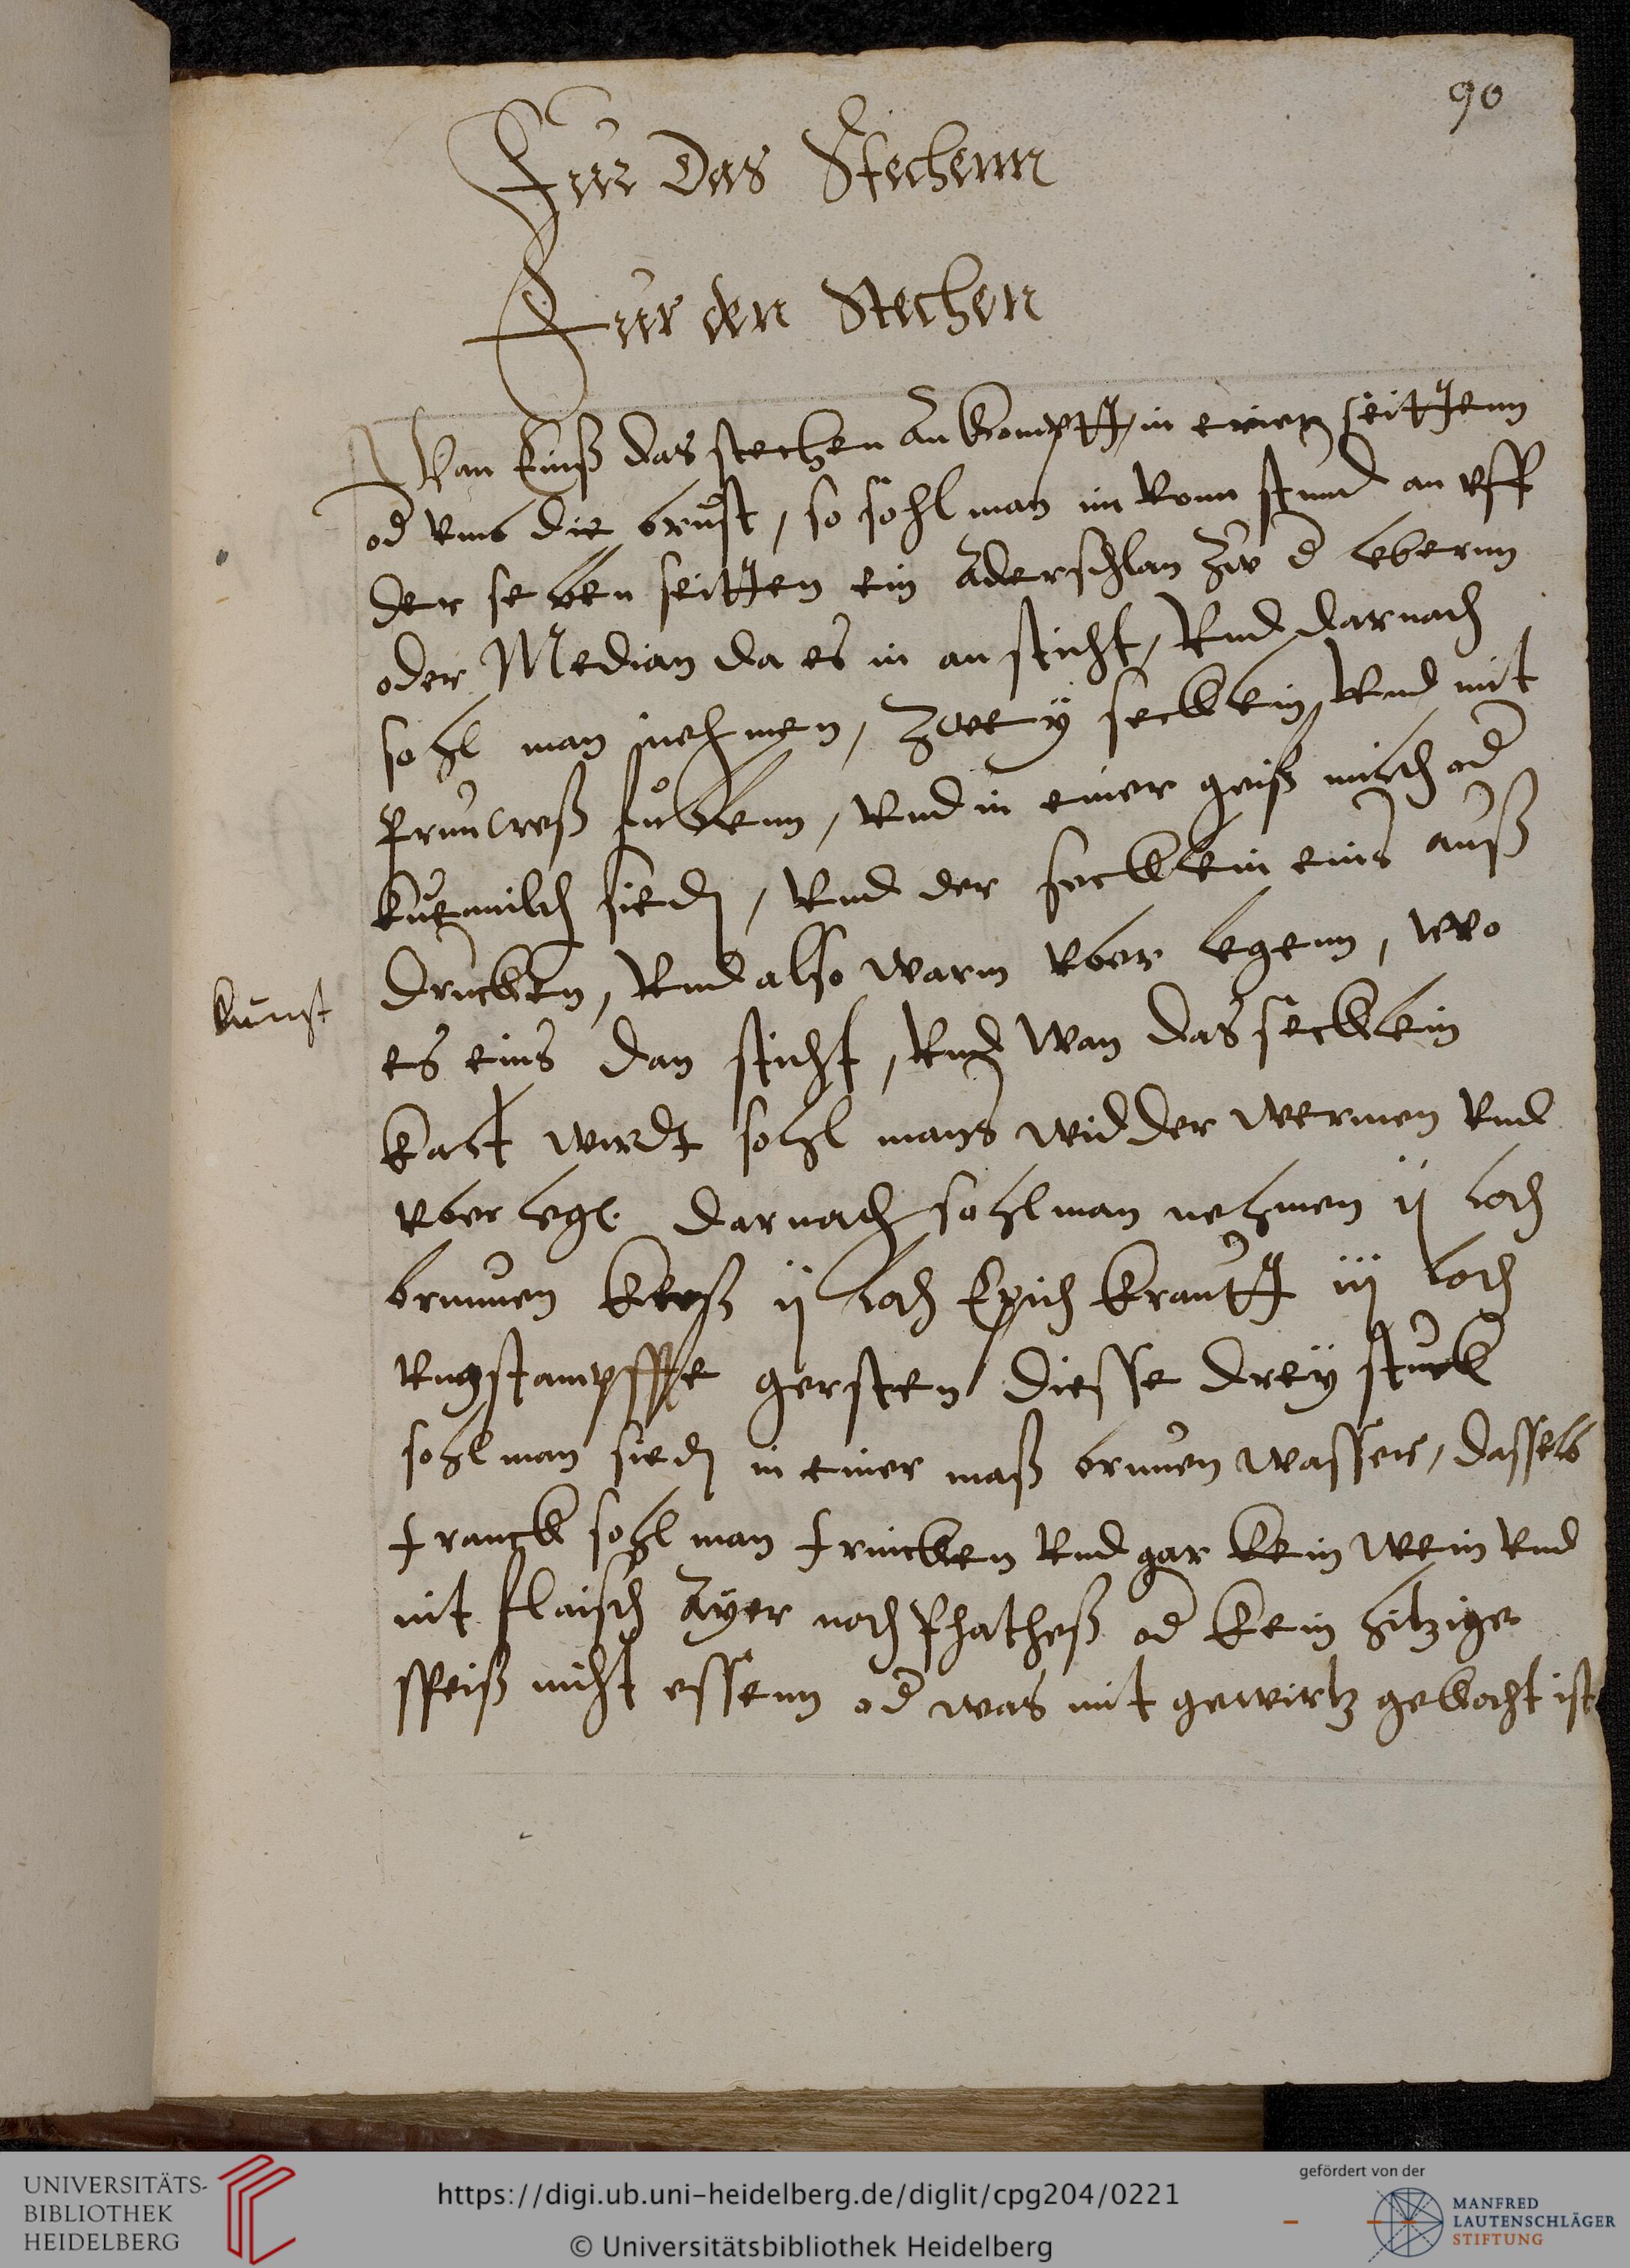 90
Fur das Stechenn
Fur den Stechen
Wan einß das stechen ankomptt, in einer seittenn
od vmb die brust, so sohl man im vonn stund an vff
der selben seitten ein aderschlan zw d lebernn
oder Median da es in an sticht, Vnd darnach
sohl man nehmen, zwey secklein Vnd mit
füllenn, Vnd in einer geiß milch od
kuemilch siedn, Vnd der secklein eins auß
drucken, Vnd also warm vber legenn, wo
kunst
es eins dan sticht, Vnd wan das secklein
kalt wirdt sohl mans widder wermen vnd
vber legn. darnach sohl man nehmen ij loth
brunnen kreß ij loth Epich krautt iij loth
gersten diesse drey stuck
sohl man siedn in einer maß brunen wassers, dasselb
tranck sohl man trincken vnd gar kein wein vnd
nit flaisch Ayer noch od kein hitzige
speiß nicht essenn od was mit gewirtz gekocht ist
UNIVERSITÄTS-
BIBLIOTHEK
HEIDELBERG
https://digi.ub.uni-heidelberg.de/diglit/cpg204/0221
© Universitätsbibliothek Heidelberg
gefördert von der
MANFRED
LAUTENSCHLÄGER
STIFTUNG